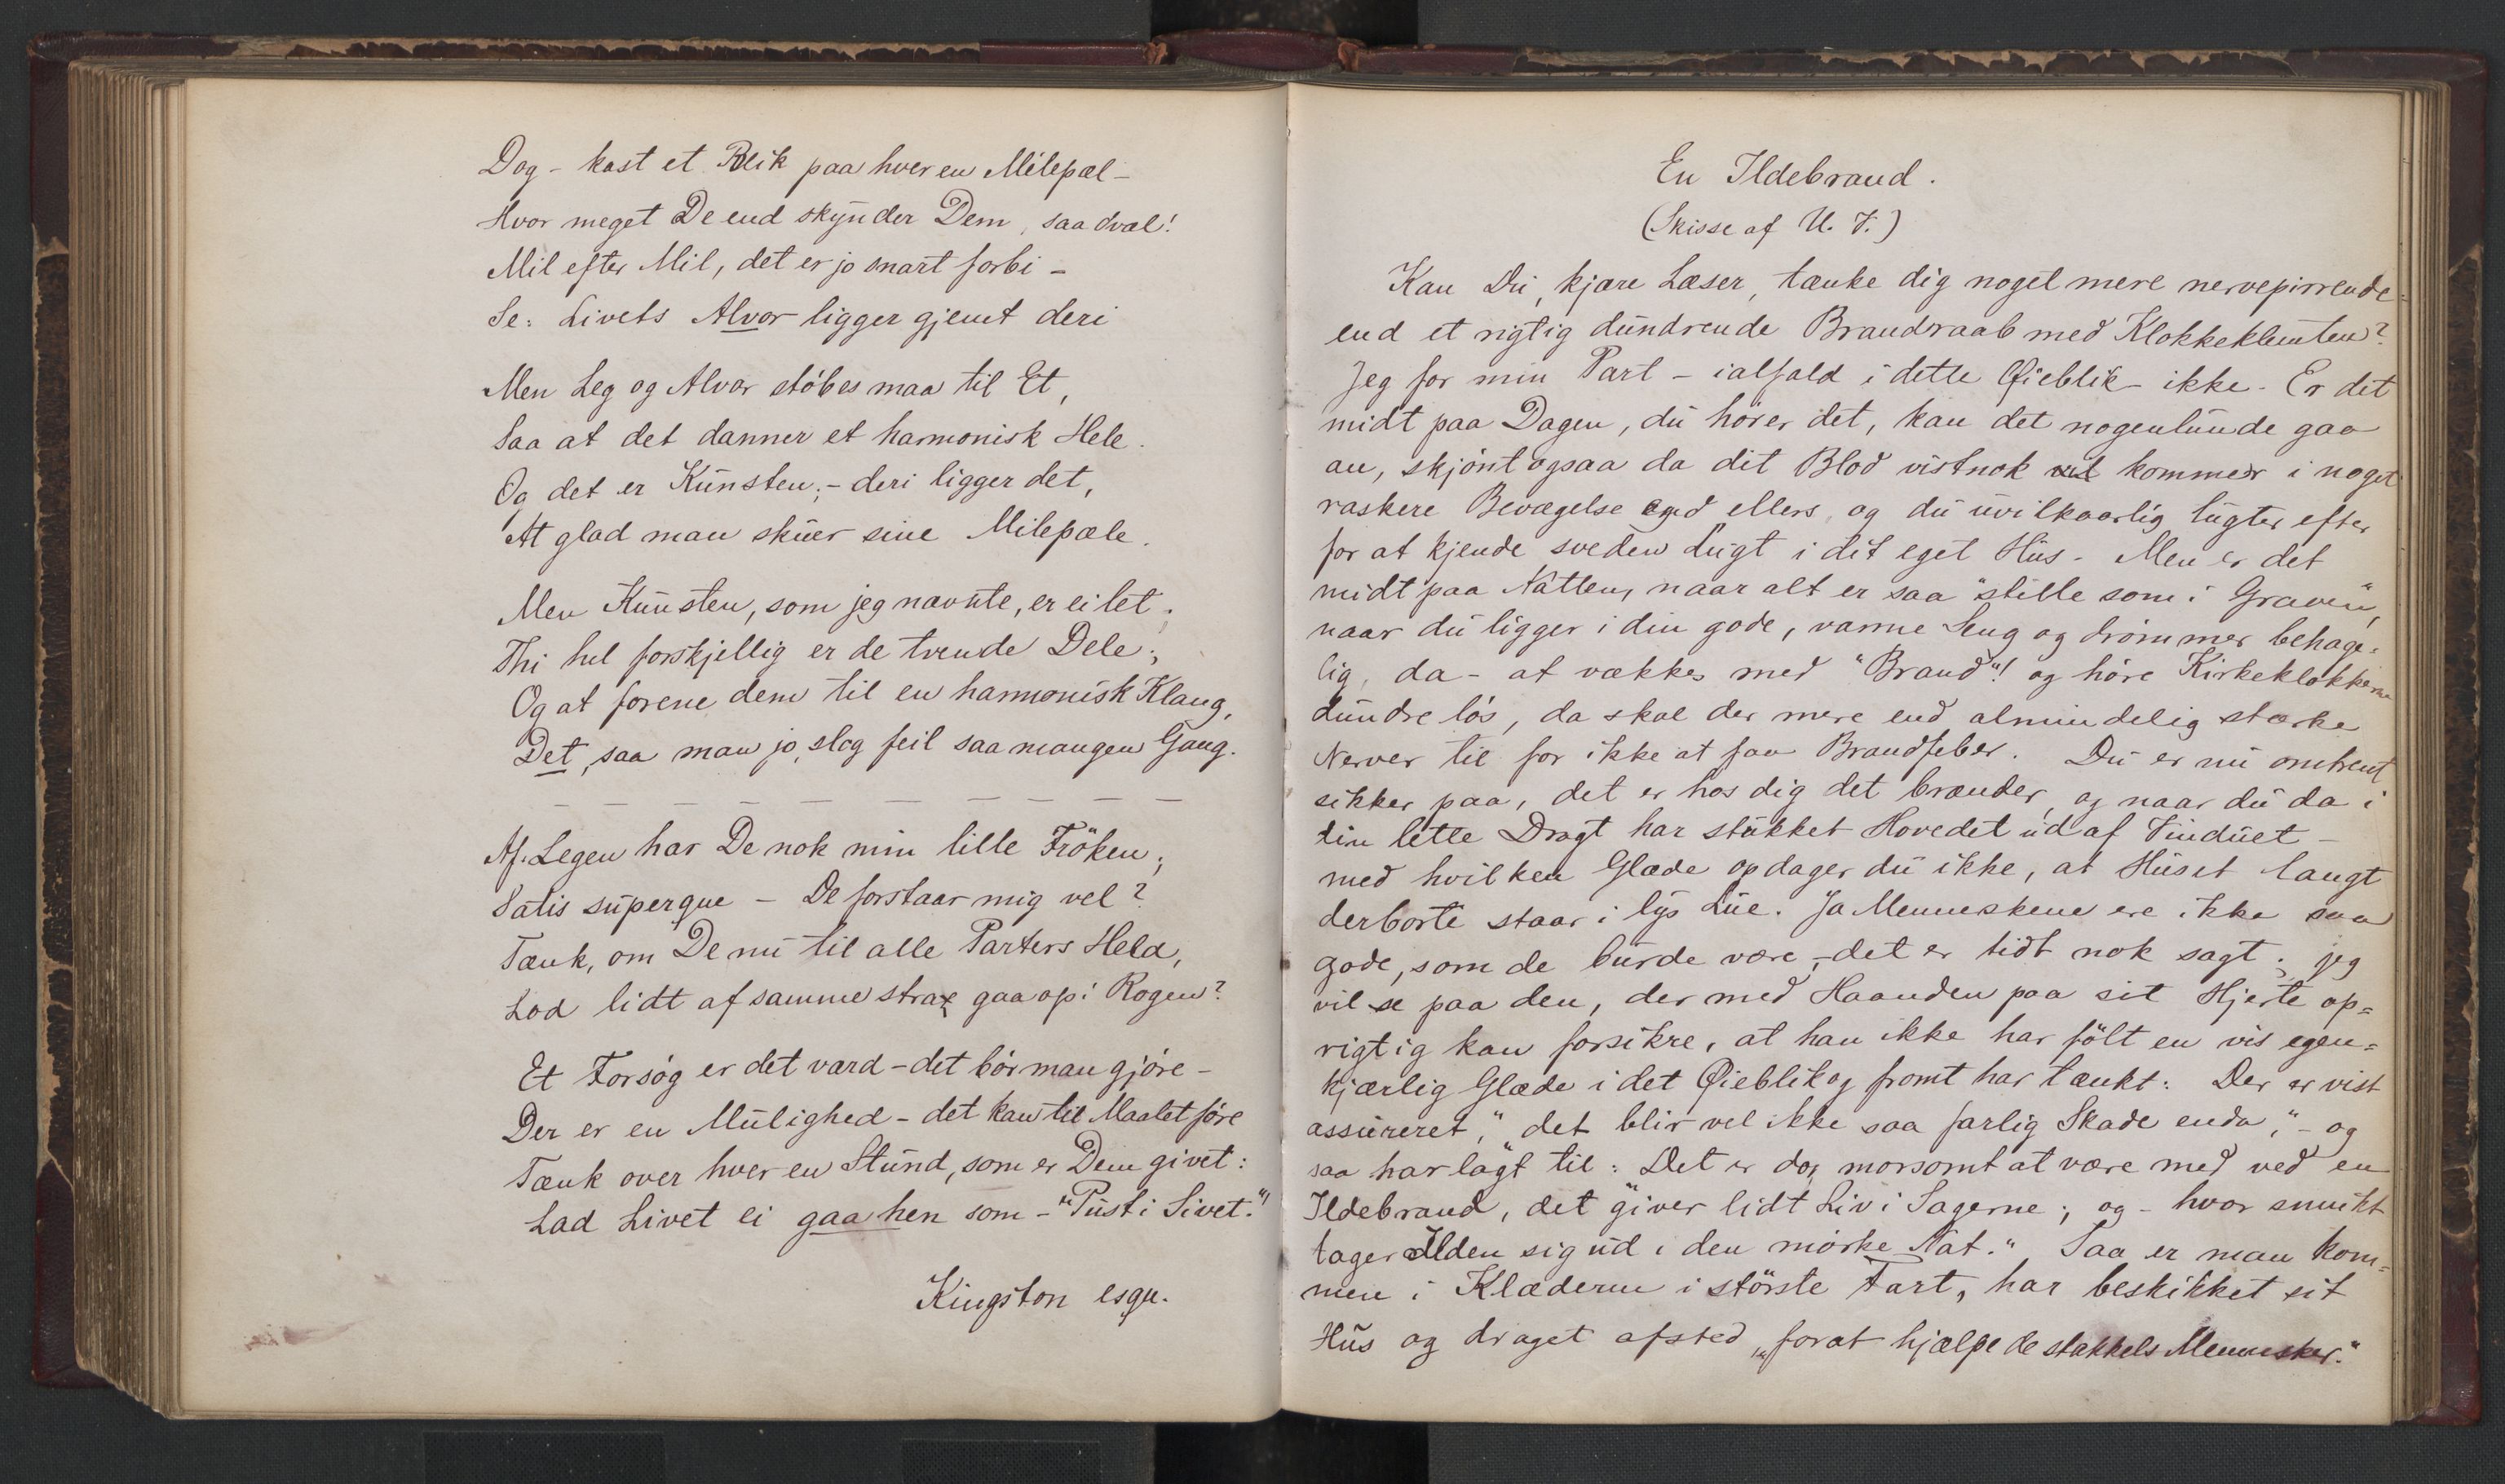 Dog - kast et Blik paa hver en Milepæl -
Hvor meget De end skynder Dem, saa dvæl!
Mil efter Mil, det er jo snart forbi -
Se: Livets Alvor ligger gjemt deri
Men Leg og Alvor stöbes maa til Et,
Saa at det danner et harmonisk Hele.
Og det er Kunsten; - deri ligger det,
At glad man skuer sine Milepæle.
Men Kunsten, som jeg nævnte, er ei let;
Thi hel forskjellig er de tvende Dele;
Og at forene dem til en harmonisk Klang,
Det, saa man jo, slog feil saa mangen Gang.
— — — — — — — — — —
Af Legen har De nok min lille Fröken;
Satis superque - De forstaar mig vel?
Tænk, om De nu til alle Parters Held,
Lod lidt af samme strax gaa op i Rögen?
Et Forsög er det værd - det bör man gjöre -
Der er en Mulighed - det kan til Maalet före
Tænk over hver en Stund, som er Dem givet:
Lad Livet ei gaa hen som - "Pust i Sivet."
Kingston esqu.
En Ildebrand.
(Skisse af U. F.)
Kan Du, kjære Læser, tænke dig noget mere nervepirrende
end et rigtig dundrende Brandraab med Klokkeklemten?
Jeg for min Part - ialfald i dette Øieblik - ikke. Er det
midt paa Dagen, du hörer det, kan det nogenlunde gaa
an, skjönt ogsaa da dit Blod vistnok kommer i noget
raskere Bevægelse end ellers, og du uvilkaarlig lugter efter
for at kjende sveden Lugt i dit eget Hus. Men er det
midt paa Natten, naar alt er saa "stille som i Graven",
naar du ligger i din gode, varme Seng og drömmer behage=
lig, da - at vækkes med "Brand"! og höre Kirkeklokkerne
dundre lös, da skal der mere end almindelig stærke
Nerver til for ikke at faa Brandfeber. Du er nu omtrent
sikker paa, det er hos dig det brænder, og naar du da i
din lette Dragt har stukket Hovedet ud af Vinduet -
med hvilken Glæde opdager du ikke, at Huset langt
derborte staar i lys Lue. Ja Menneskene ere ikke saa
gode, som de burde være, - det er tidt nok sagt; jeg
vil se paa den, der med Haanden paa sit Hjerte op=
rigtig kan forsikre, at han ikke har fölt en vis egen=
kjærlig Glæde i det Øieblik og fromt har tænkt: Der er vist
assureret," "det blir vel ikke saa farlig Skade enda," - og
saa har lagt til: "Det er dog morsomt at være med ved en
Ildebrand, det giver lidt Liv i Sagerne; og - hvor smukt
tager Ilden sig ud i den mörke Nat." Saa er man kom=
men i Klæderne i störste Fart, har beskikket sit
Hus og draget afsted "forat hjælpe de stakkels Mennesker."